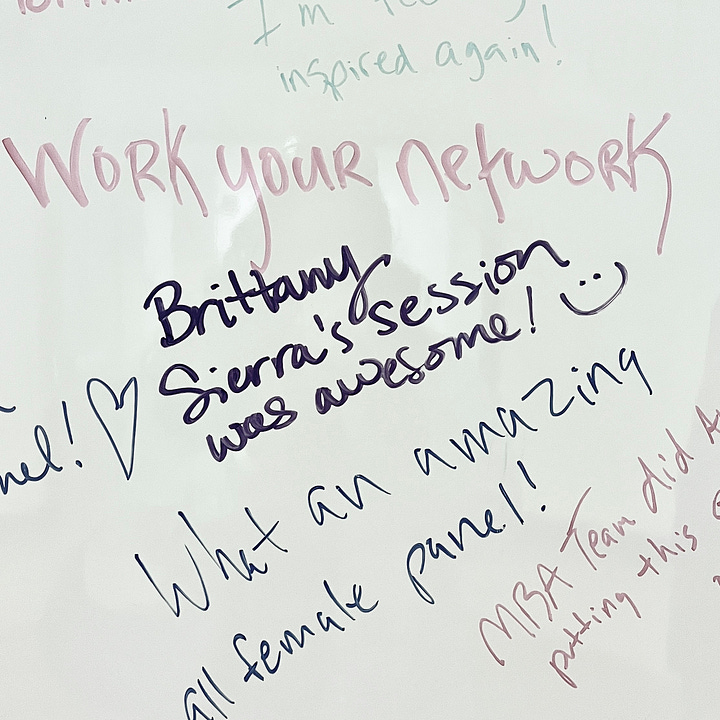 I'm
inspired again!
Work your network
Brittany
Sierra's session
was awesome!
What an amazing
all female panel!
MBA Team did
putting this